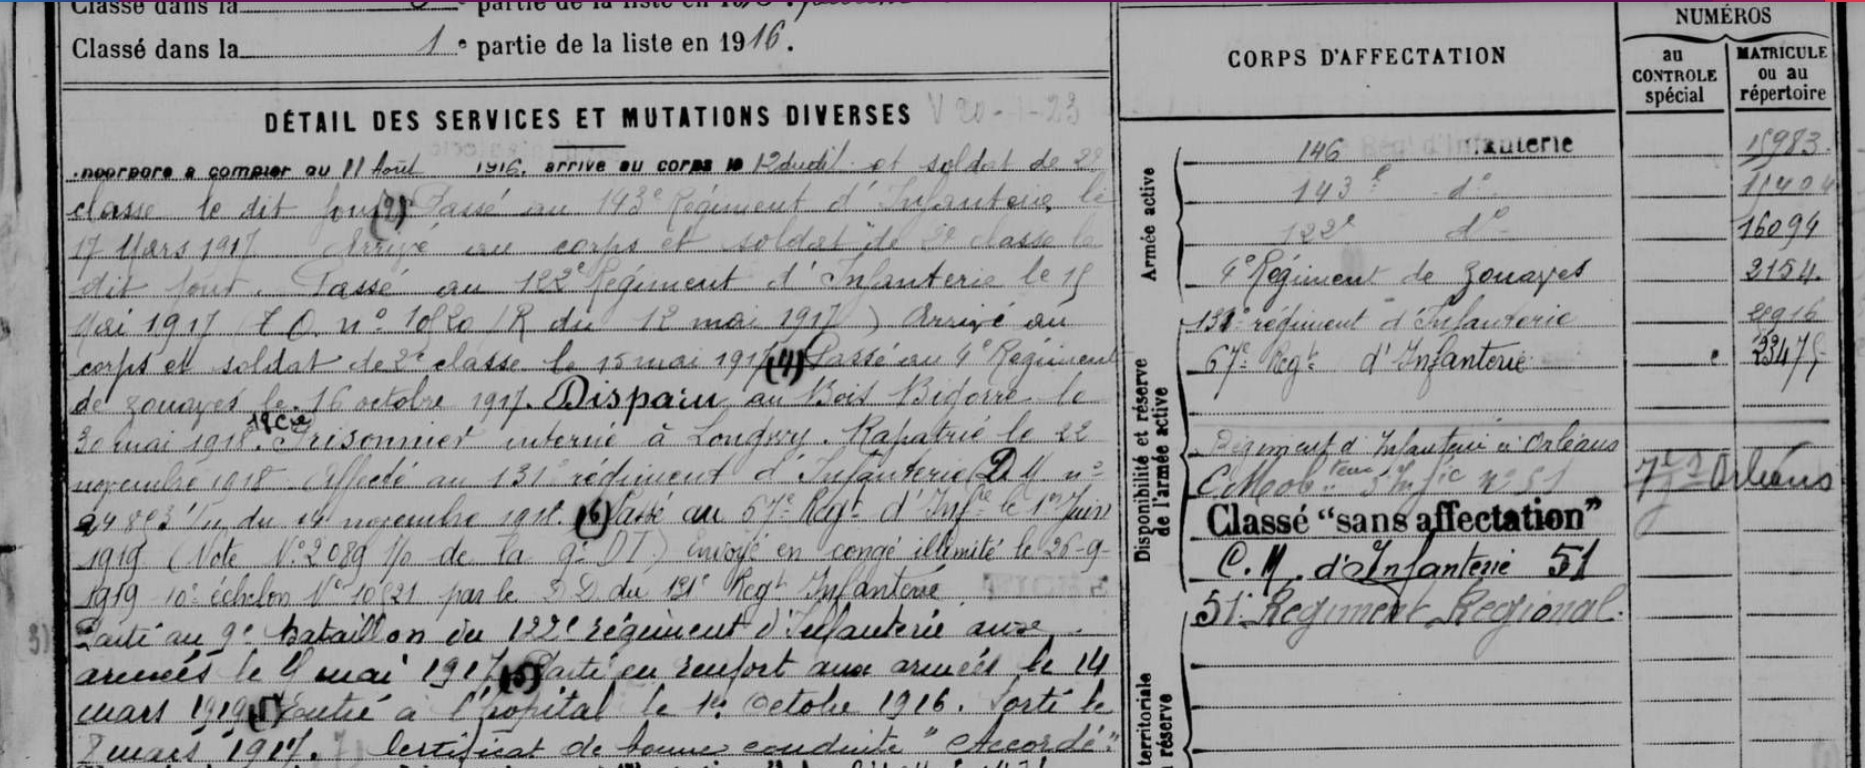 Classé dans la partie de la liste en 19
Classé dans la 1e partie de la liste en 1916.
DÉTAIL DES SERVICES ET MUTATIONS DIVERSES
V 20-1-23
incorporé à compter du 11 Août 1916, arrivé au corps le 12 dudit et soldat de 2e
classe le dit jour (2) Passé au 143e Régiment d'Infanterie le
17 Mars 1917 Arrivé au corps et soldat de 2e classe le
dit jour. Passé au 122e Régiment d'Infanterie le 15
Mai 1917 (T.O. n° 1020 /R du 12 mai 1917) Arrivé au
corps et soldat de 2e classe le 15 mai 1917 (4) Passé au 4e Régiment
de zouaves le 16 octobre 1917. Disparu au Bois Bigorre le
30 mai 1918. 19 Cie Prisonnier interné à Longwy. Rapatrié le 22
novembre 1918 Affecté au 131e régiment d'Infanterie D.M. n°
du 14 novembre 1918. (6) Passé au 67e Regt d'Infie le 1er Juin
1919 (Note N° 2089 1/0 de la 9e DI) Envoyé en congé illimité le 26-9-
1919 10e échelon N° 10621 par le D.D. du 131e Regt Infanterie
3) Parti au 9e bataillon du 122e régiment d'Infanterie aux
armées le 4 mai 1917 (5) Parti en renfort aux armées le 14
mars 1919 (1) Entré à l'hôpital le 1er Octobre 1916. Sorti le
2 mars 1917. 7) Certificat de bonne conduite "Accordé."
CORPS D'AFFECTATION
NUMÉROS
au CONTROLE spécial
MATRICULE ou au répertoire
Armée active
146 Infanterie 15983.
143e do
122e do 16094
4e Régiment de zouaves 2154.
131e régiment d'Infanterie 2916
67e Regt d'Infanterie
Disponibilité et réserve de l'armée active
Régiment d'Infanterie à Orléans
C. Mob. d'Infie n° 51 Orléans
Classé "sans affectation"
C.M. d'Infanterie 51
51e Régiment Régional.
territoriale
réserve